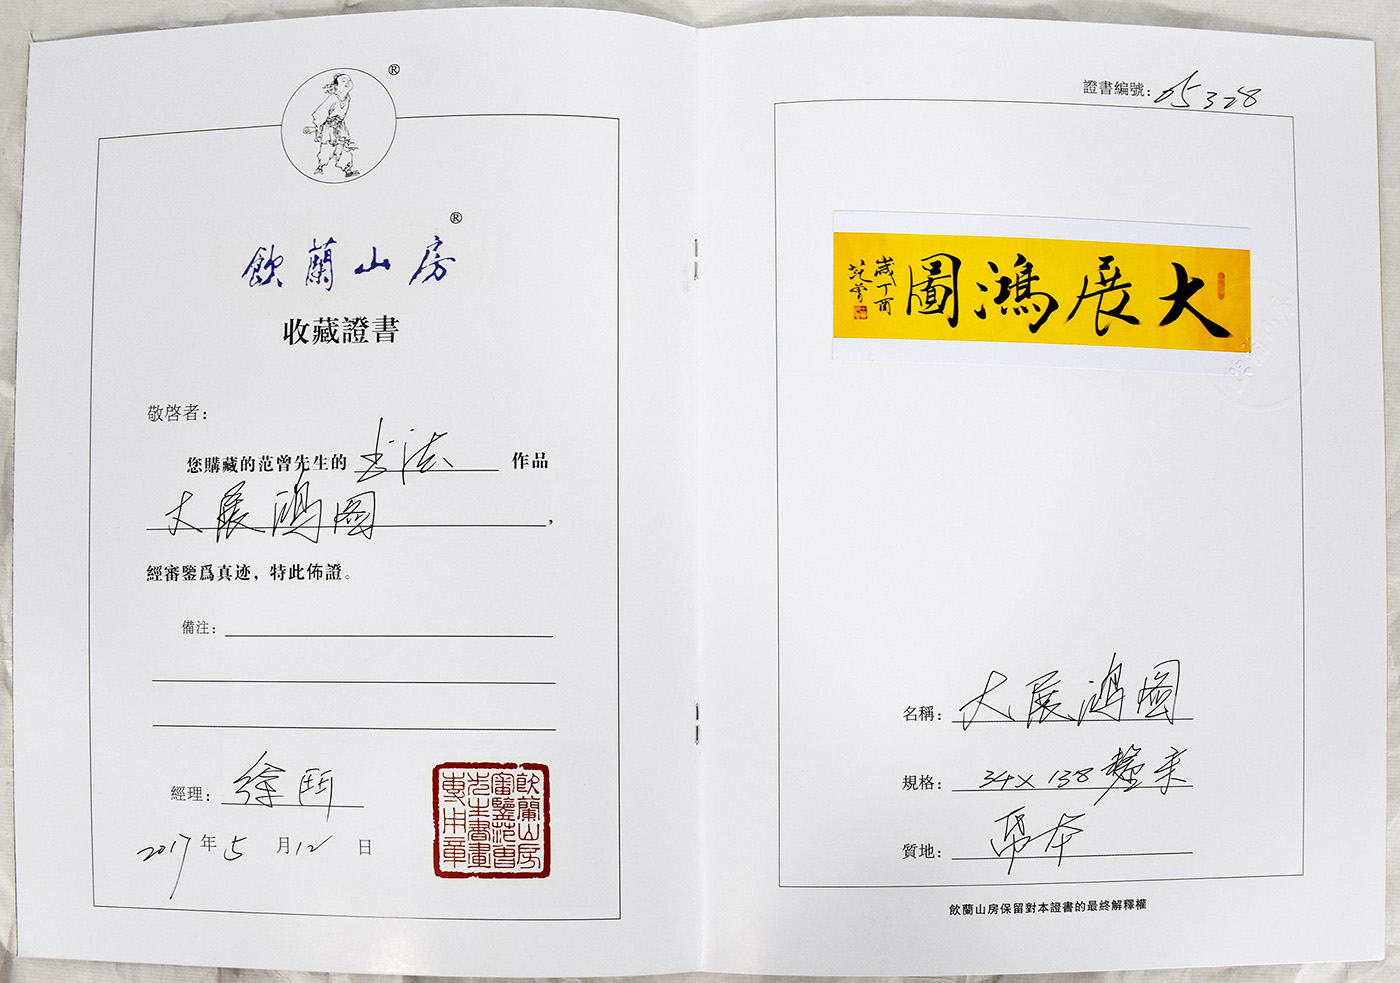 ®
飲蘭山房®
收藏證書
敬啓者：
您購藏的范曾先生的 书法 作品
大展鴻圖，
經審鑒爲真迹，特此佈證。
備注：
經理：徐
2017年5月12日
飲蘭山房
審鑒范曾
先生書畫
專用章
證書編號：05328
大展鴻圖
歲丁酉
范曾
名稱：大展鴻圖
規格：34×138 釐米
質地：纸本
飲蘭山房保留對本證書的最終解釋權